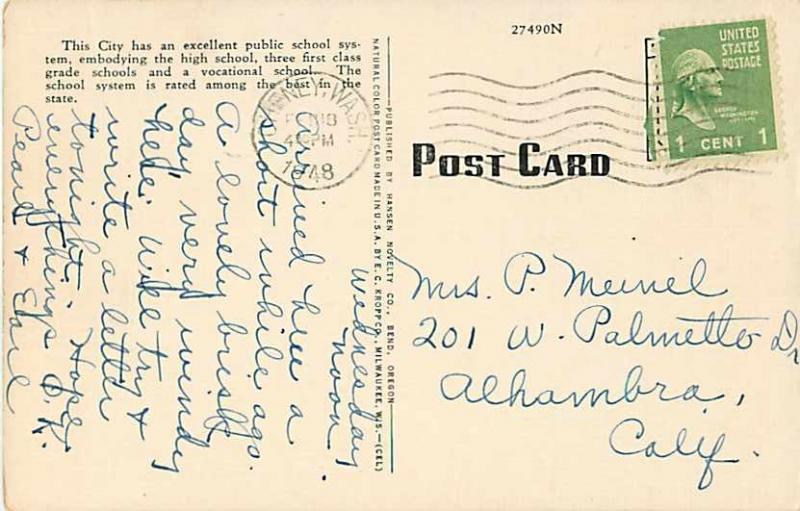 This City has an excellent public school sys-
tem, embodying the high school, three first class
grade schools and a vocational school. The
school system is rated among the best in the
state.
27490N
UNITED
STATES
POSTAGE
GEORGE
WASHINGTON
1 CENT 1
WASH.
PM
1948
POST CARD
—PUBLISHED BY HANSEN NOVELTY CO., BEND, OREGON—
NATURAL COLOR POST CARD MADE IN U.S.A. BY E. C. KROPP CO., MILWAUKEE, WIS.—(CEL)
Wednesday
noon.
Arrived here a
short while ago.
A lovely brisk
day very windy
here. Will try &
write a letter
tonight. Hope
everythings O.K.
Pearl & Earl
Mrs. P. Meinel
201 W. Palmetto Dr
Alhambra,
Calif.